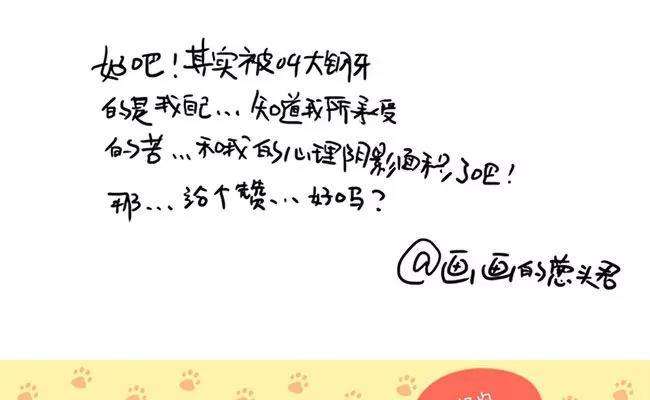 好吧！其实被叫大钢牙
的是我自己...知道我所承受
的苦...和我的心理阴影面积了吧！
那...给个赞...好吗？
@画画的葱头君